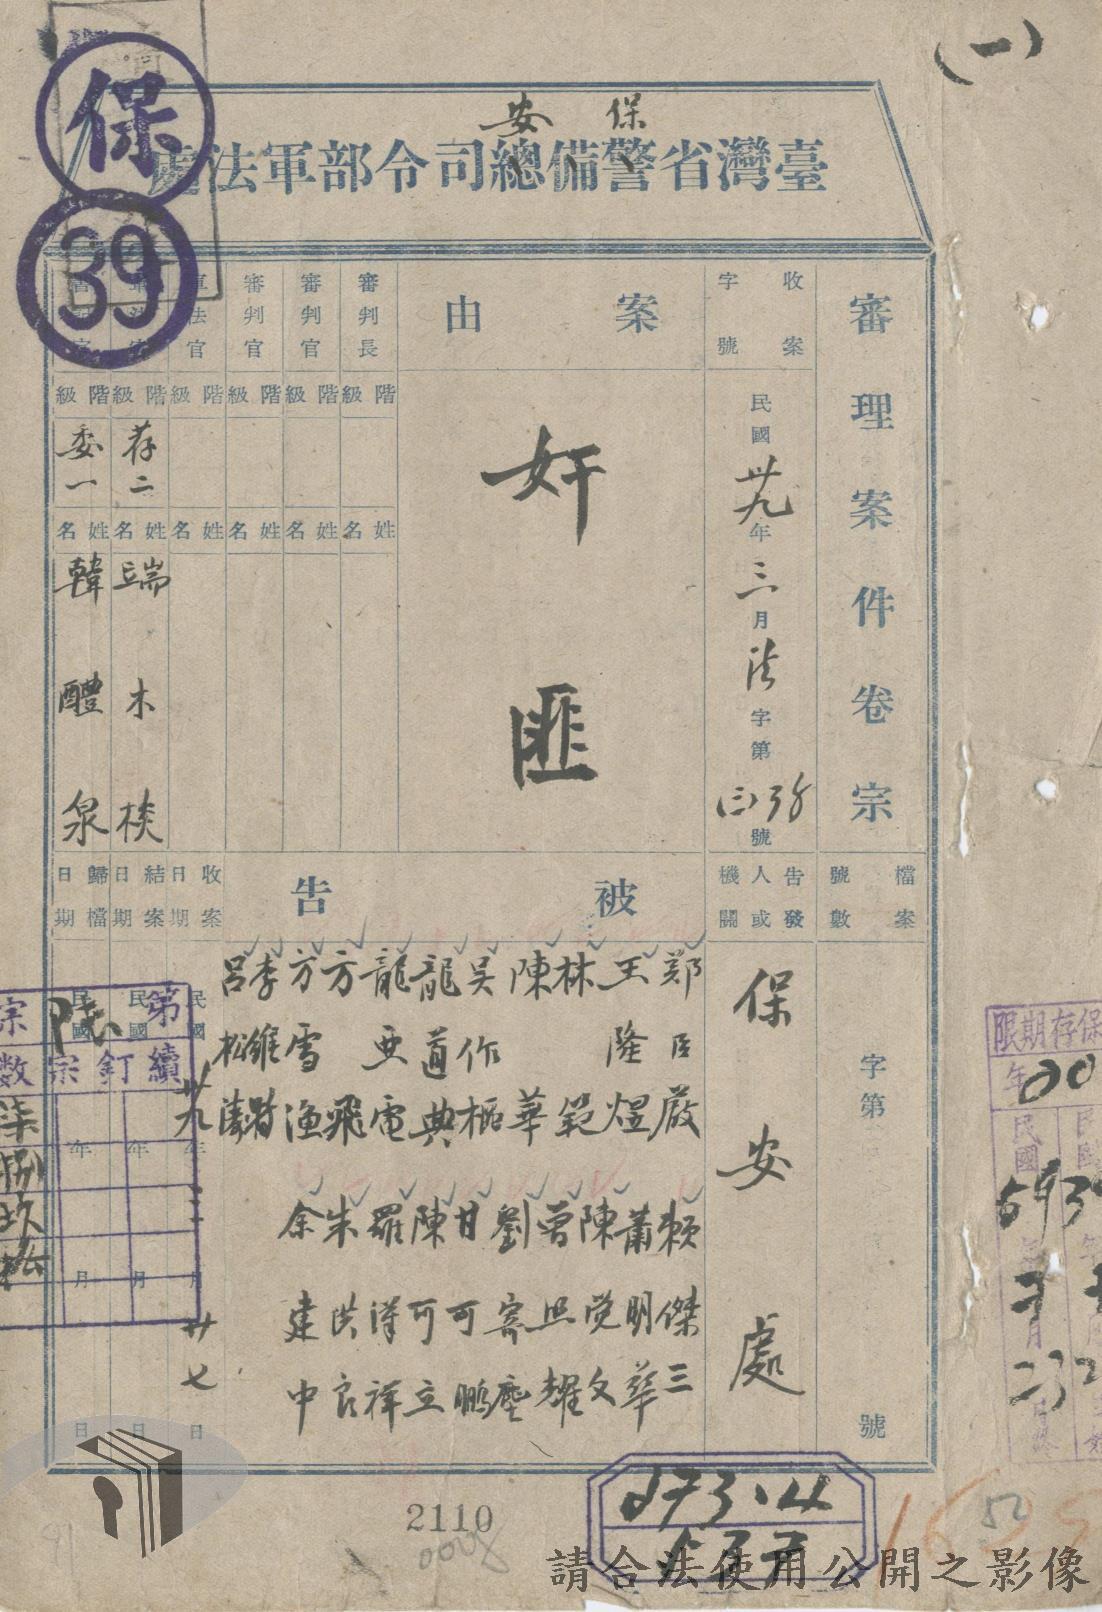 (一)
保
39
保安
臺灣省警備總司令部軍法處
審理案件卷宗
檔案號數
字第
號
收案字號
民國卅九年三月法字第
號
告發人或機關
保安處
案由
奸匪
審判長
階級
姓名
審判官
階級
姓名
審判官
階級
姓名
軍法官
階級
姓名
階級
荐二
姓名
端木棪
階級
委一
姓名
韓醴泉
被告
鄭臣嚴
王隆煜
林範
陳華
吳作樞
龍道典
龍亜電
方飛
方雪漁
李維
呂松濤
賴傑三
蕭明華
陳覚文
曾照耀
劉寄塵
甘可鵬
陳可立
羅漢祥
朱洪良
余建中
收案日期
民國卅九年三月廿七日
結案日期
民國 年 月 日
歸檔日期
民國 年 月 日
第
宗
續訂宗數
柒
捌
玖
拾
保存期限
年
民國
民國
2110
0008
273.4
請合法使用公開之影像